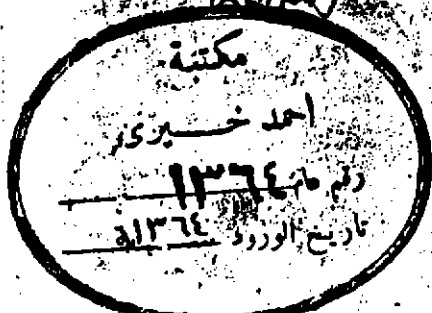 مكتبة
احمد خيرى
رقم عام ١٣٦٤
تاريخ الورود ١٣٦٤